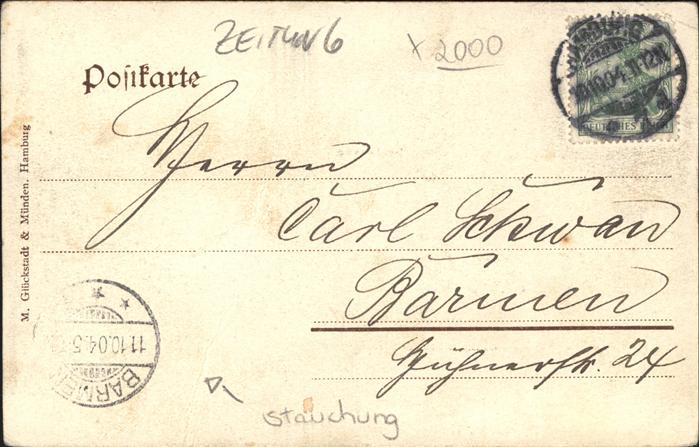 ZEITUNG
x 2000
Postkarte
HAMBURG
10.10.04.11-12V.
DEUTSCHES
Herrn
Carl Schwan
Barmen
24
M. Glückstadt & Münden, Hamburg
11.10.04.5-
BARMEN
Stauchung